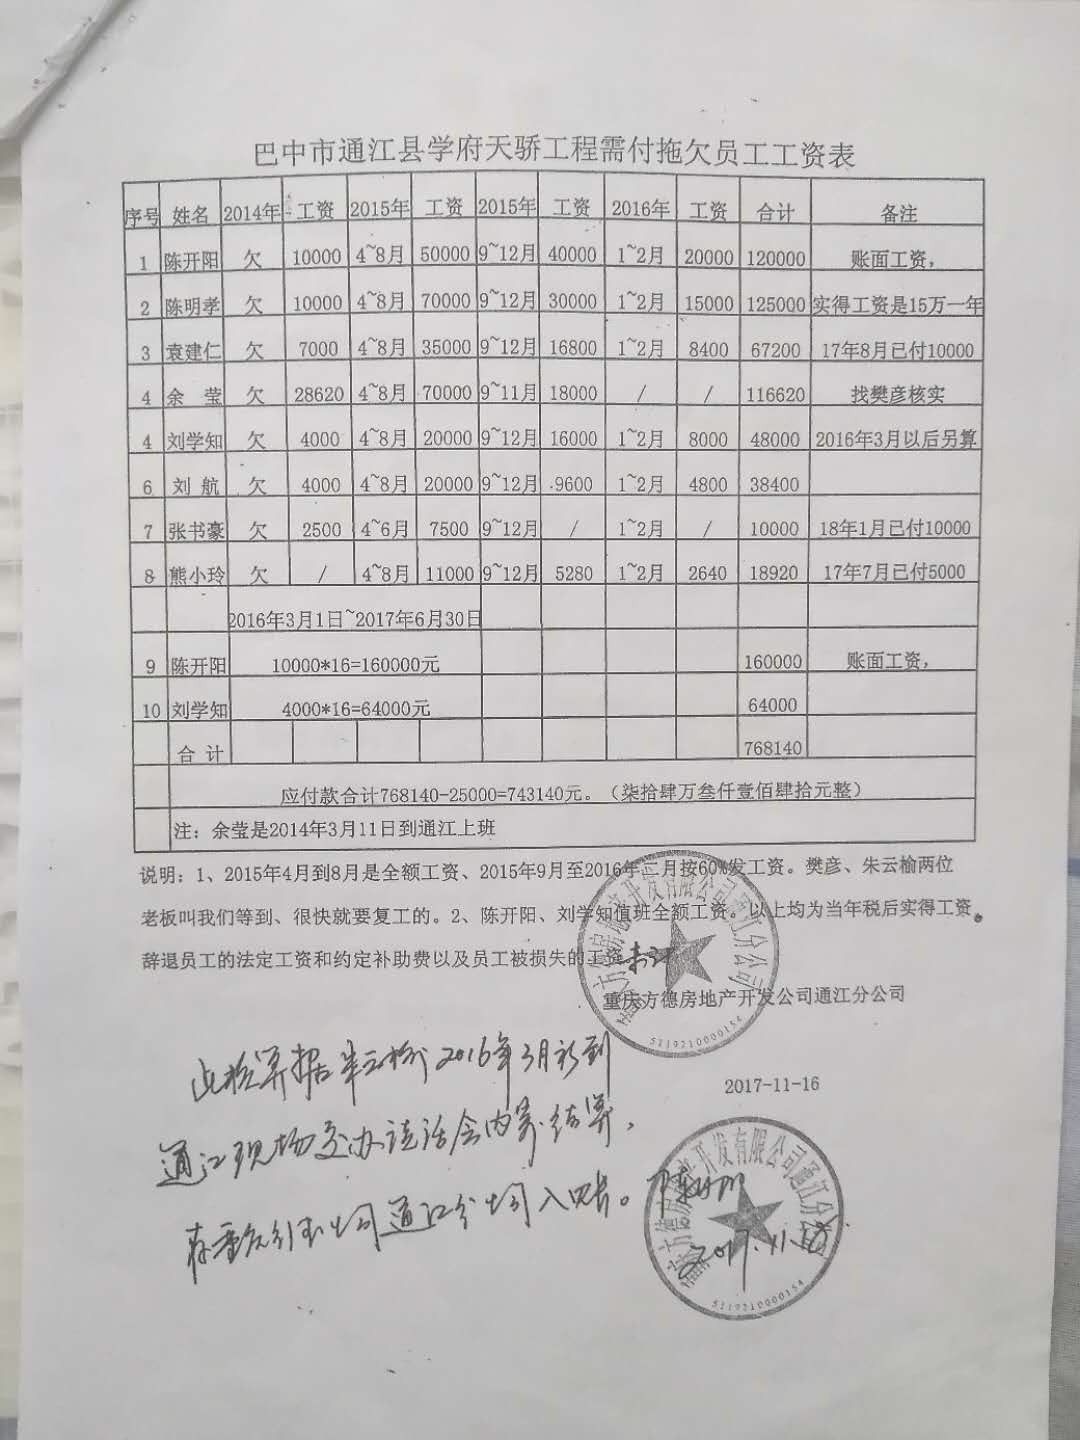 巴中市通江县学府天骄工程需付拖欠员工工资表
序号 姓名 2014年 工资 2015年 工资 2015年 工资 2016年 工资 合计 备注
1 陈开阳 欠 10000 4~8月 50000 9~12月 40000 1~2月 20000 120000 账面工资，
2 陈明孝 欠 10000 4~8月 70000 9~12月 30000 1~2月 15000 125000 实得工资是15万一年
3 袁建仁 欠 7000 4~8月 35000 9~12月 16800 1~2月 8400 67200 17年8月已付10000
4 余 莹 欠 28620 4~8月 70000 9~11月 18000 / / 116620 找樊彦核实
4 刘学知 欠 4000 4~8月 20000 9~12月 16000 1~2月 8000 48000 2016年3月以后另算
6 刘 航 欠 4000 4~8月 20000 9~12月 9600 1~2月 4800 38400
7 张书豪 欠 2500 4~6月 7500 9~12月 / 1~2月 / 10000 18年1月已付10000
8 熊小玲 欠 / 4~8月 11000 9~12月 5280 1~2月 2640 18920 17年7月已付5000
2016年3月1日~2017年6月30日
9 陈开阳 10000*16=160000元 160000 账面工资，
10 刘学知 4000*16=64000元 64000
合 计 768140
应付款合计768140-25000=743140元。（柒拾肆万叁仟壹佰肆拾元整）
注：余莹是2014年3月11日到通江上班
说明：1、2015年4月到8月是全额工资、2015年9月至2016年二月按60%发工资。樊彦、朱云榆两位
老板叫我们等到、很快就要复工的。2、陈开阳、刘学知值班全额工资。以上均为当年税后实得工资。
辞退员工的法定工资和约定补助费以及员工被损失的工资
重庆方德房地产开发公司通江分公司
5119210000154
2017-11-16
此核算据 2016年3月 到
通江现场交办谈话会内容结算，
公司通江分公司入账。
房地产开发有限公司通江分公司
2017.11.
5119210000154